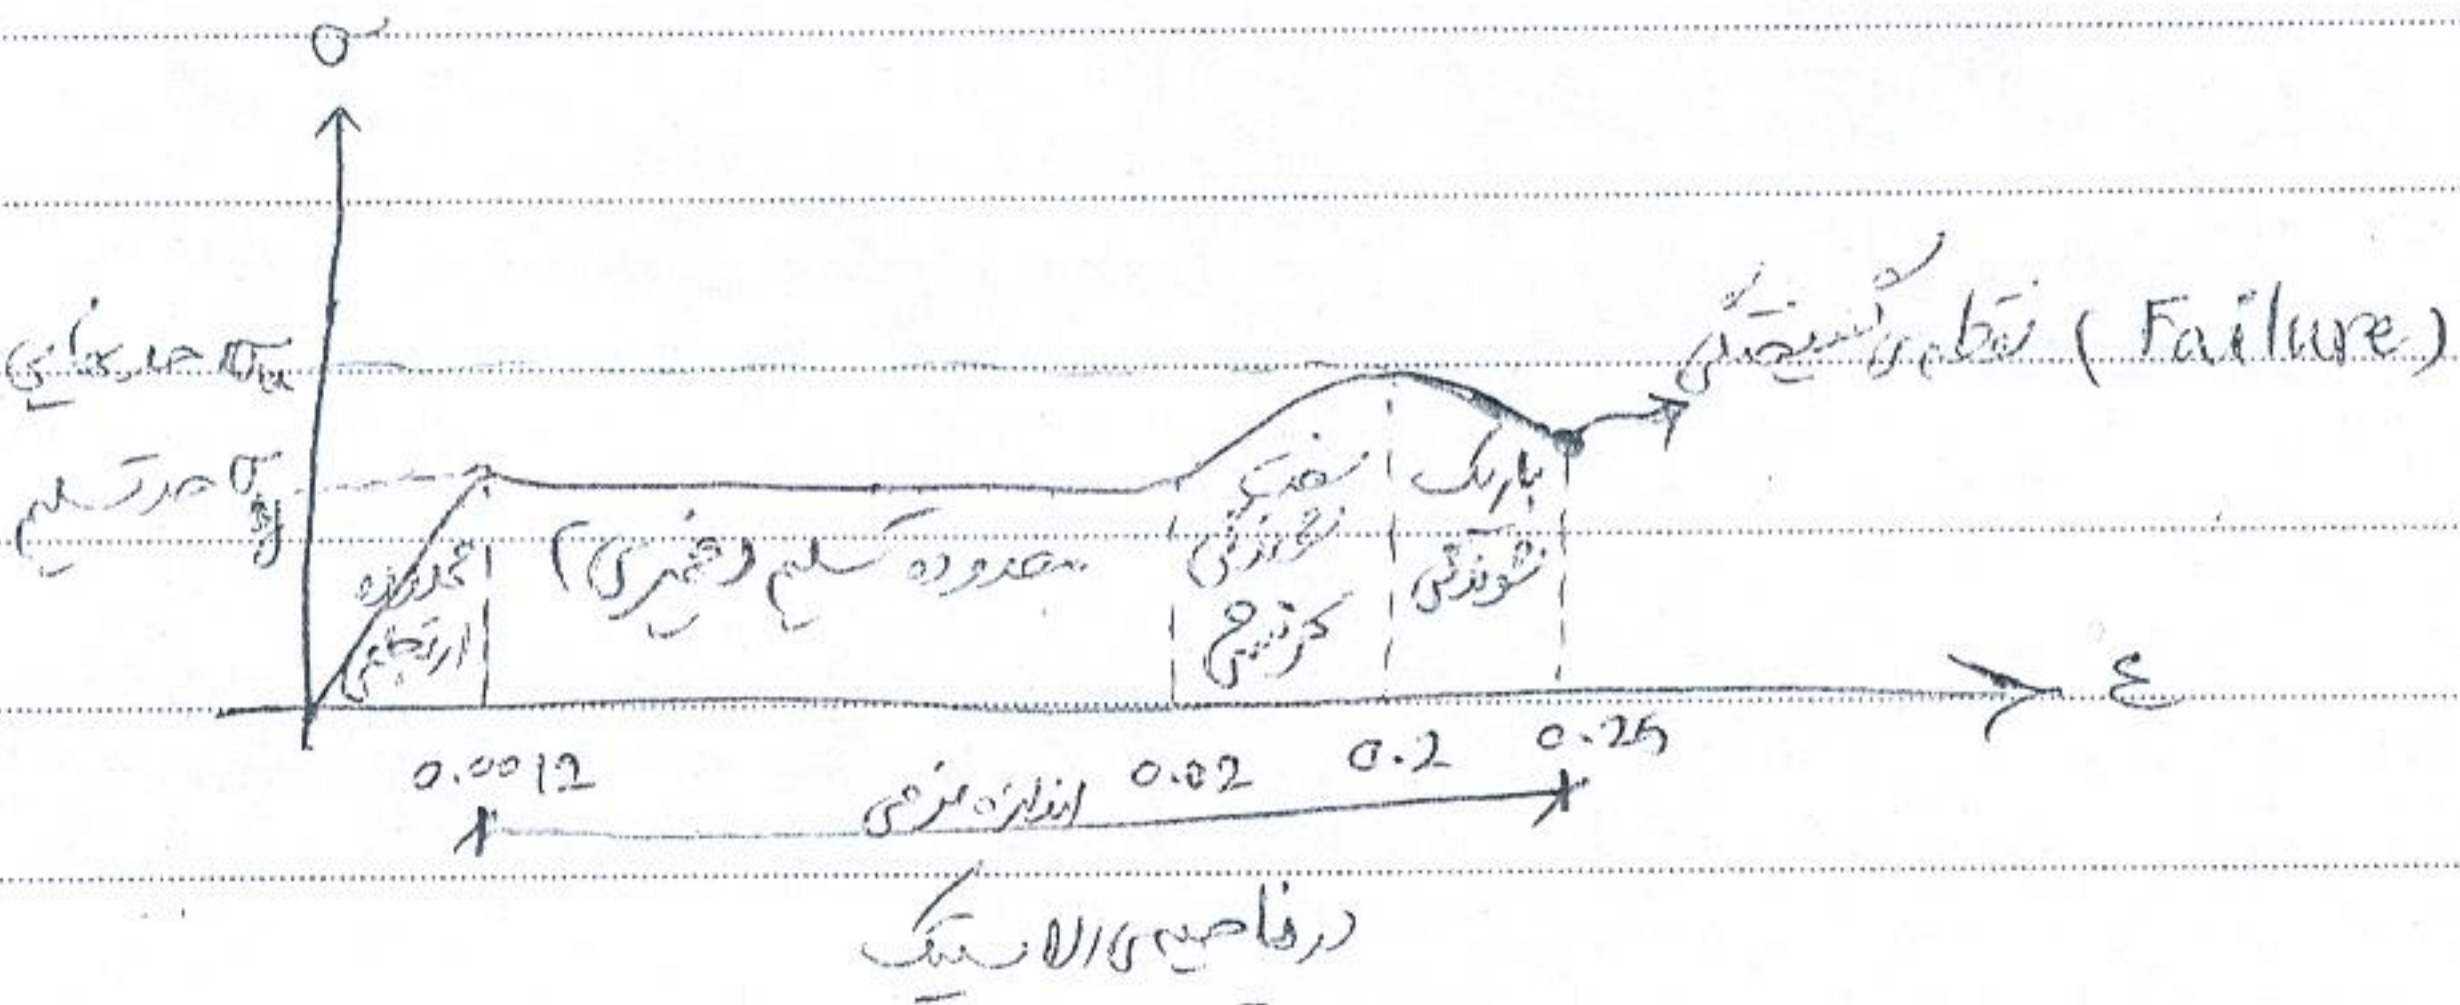 σ
σu حد نهایی
نقطه‌ی گسیختگی (Failure)
σy حد تسلیم
محدوده
ارتجاعی
محدوده تسلیم (خمیری)
سخت
شوندگی
کرنشی
باریک
شوندگی
ε
0.0012
0.02
0.2
0.25
اندازه نرمی
در ناحیه‌ی الاستیک